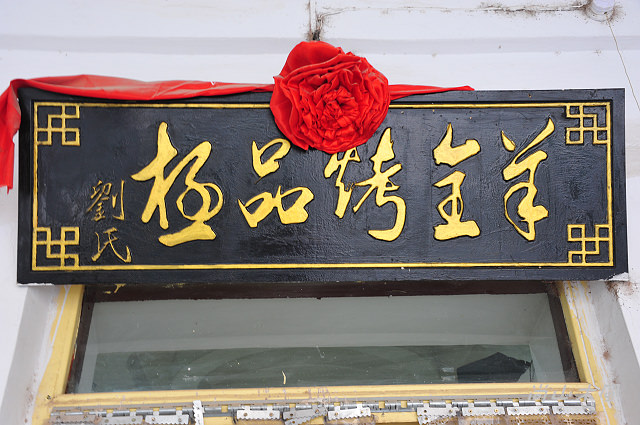 劉氏
极品烤全羊